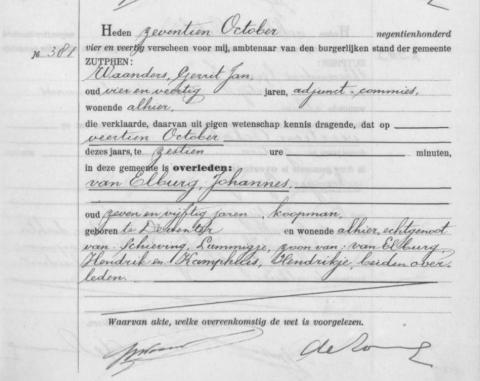 Heden zeventien October negentienhonderd
№ 381
vier en veertig verscheen voor mij, ambtenaar van den burgerlijken stand der gemeente
ZUTPHEN:
Waanders, Gerrit Jan,
oud vier en veertig jaren, adjunct-commies,
wonende alhier,
die verklaarde, daarvan uit eigen wetenschap kennis dragende, dat op
veertien October
dezes jaars, te zestien ure minuten,
in deze gemeente is overleden:
van Elburg, Johannes,
oud zeven en vijftig jaren, koopman,
geboren te Deventer en wonende alhier, echtgenoot
van: Schieving, Lummigje, zoon van: van Elburg,
Hendrik en Kamphuis, Hendrikje, beiden over-
leden.
Waarvan akte, welke overeenkomstig de wet is voorgelezen.